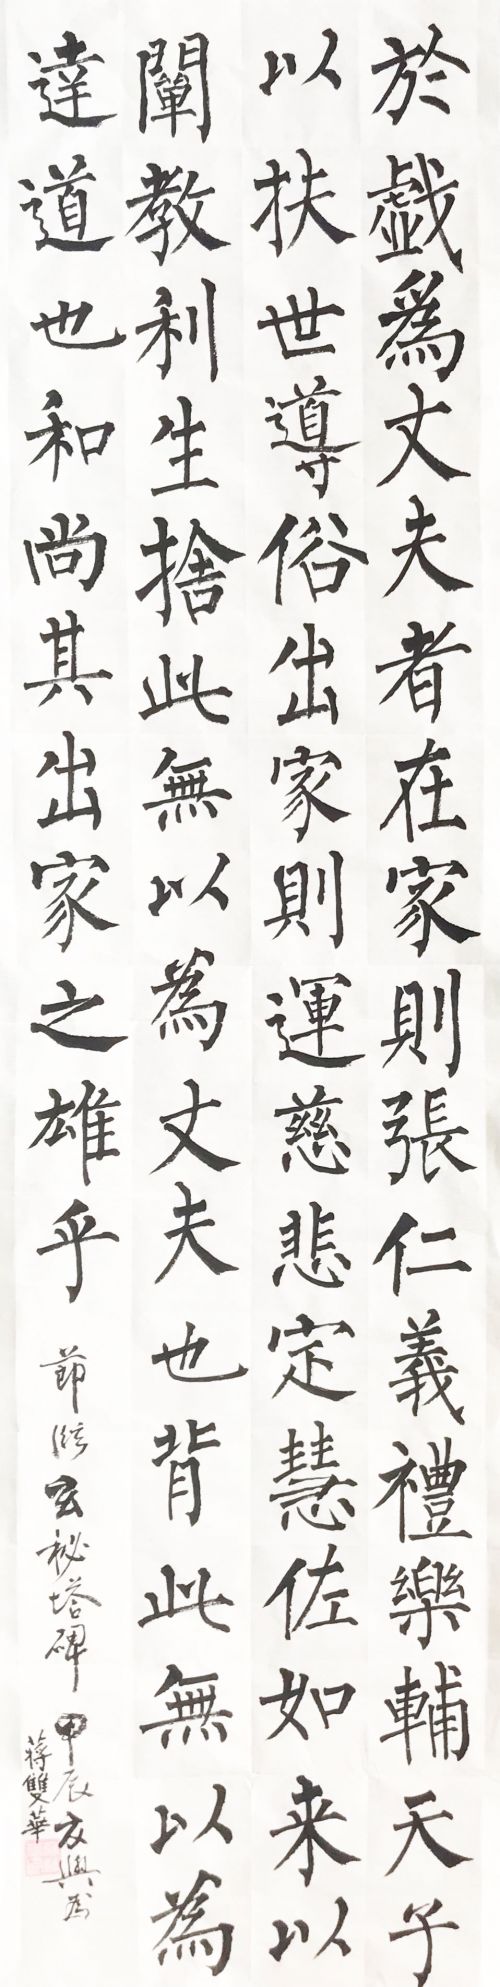 於戲爲丈夫者在家則張仁義禮樂輔天子
以扶世導俗出家則運慈悲定慧佐如来以
闡教利生捨此無以為丈夫也背此無以為
達道也和尚其出家之雄乎
節臨玄秘塔碑
甲辰
蔣雙華